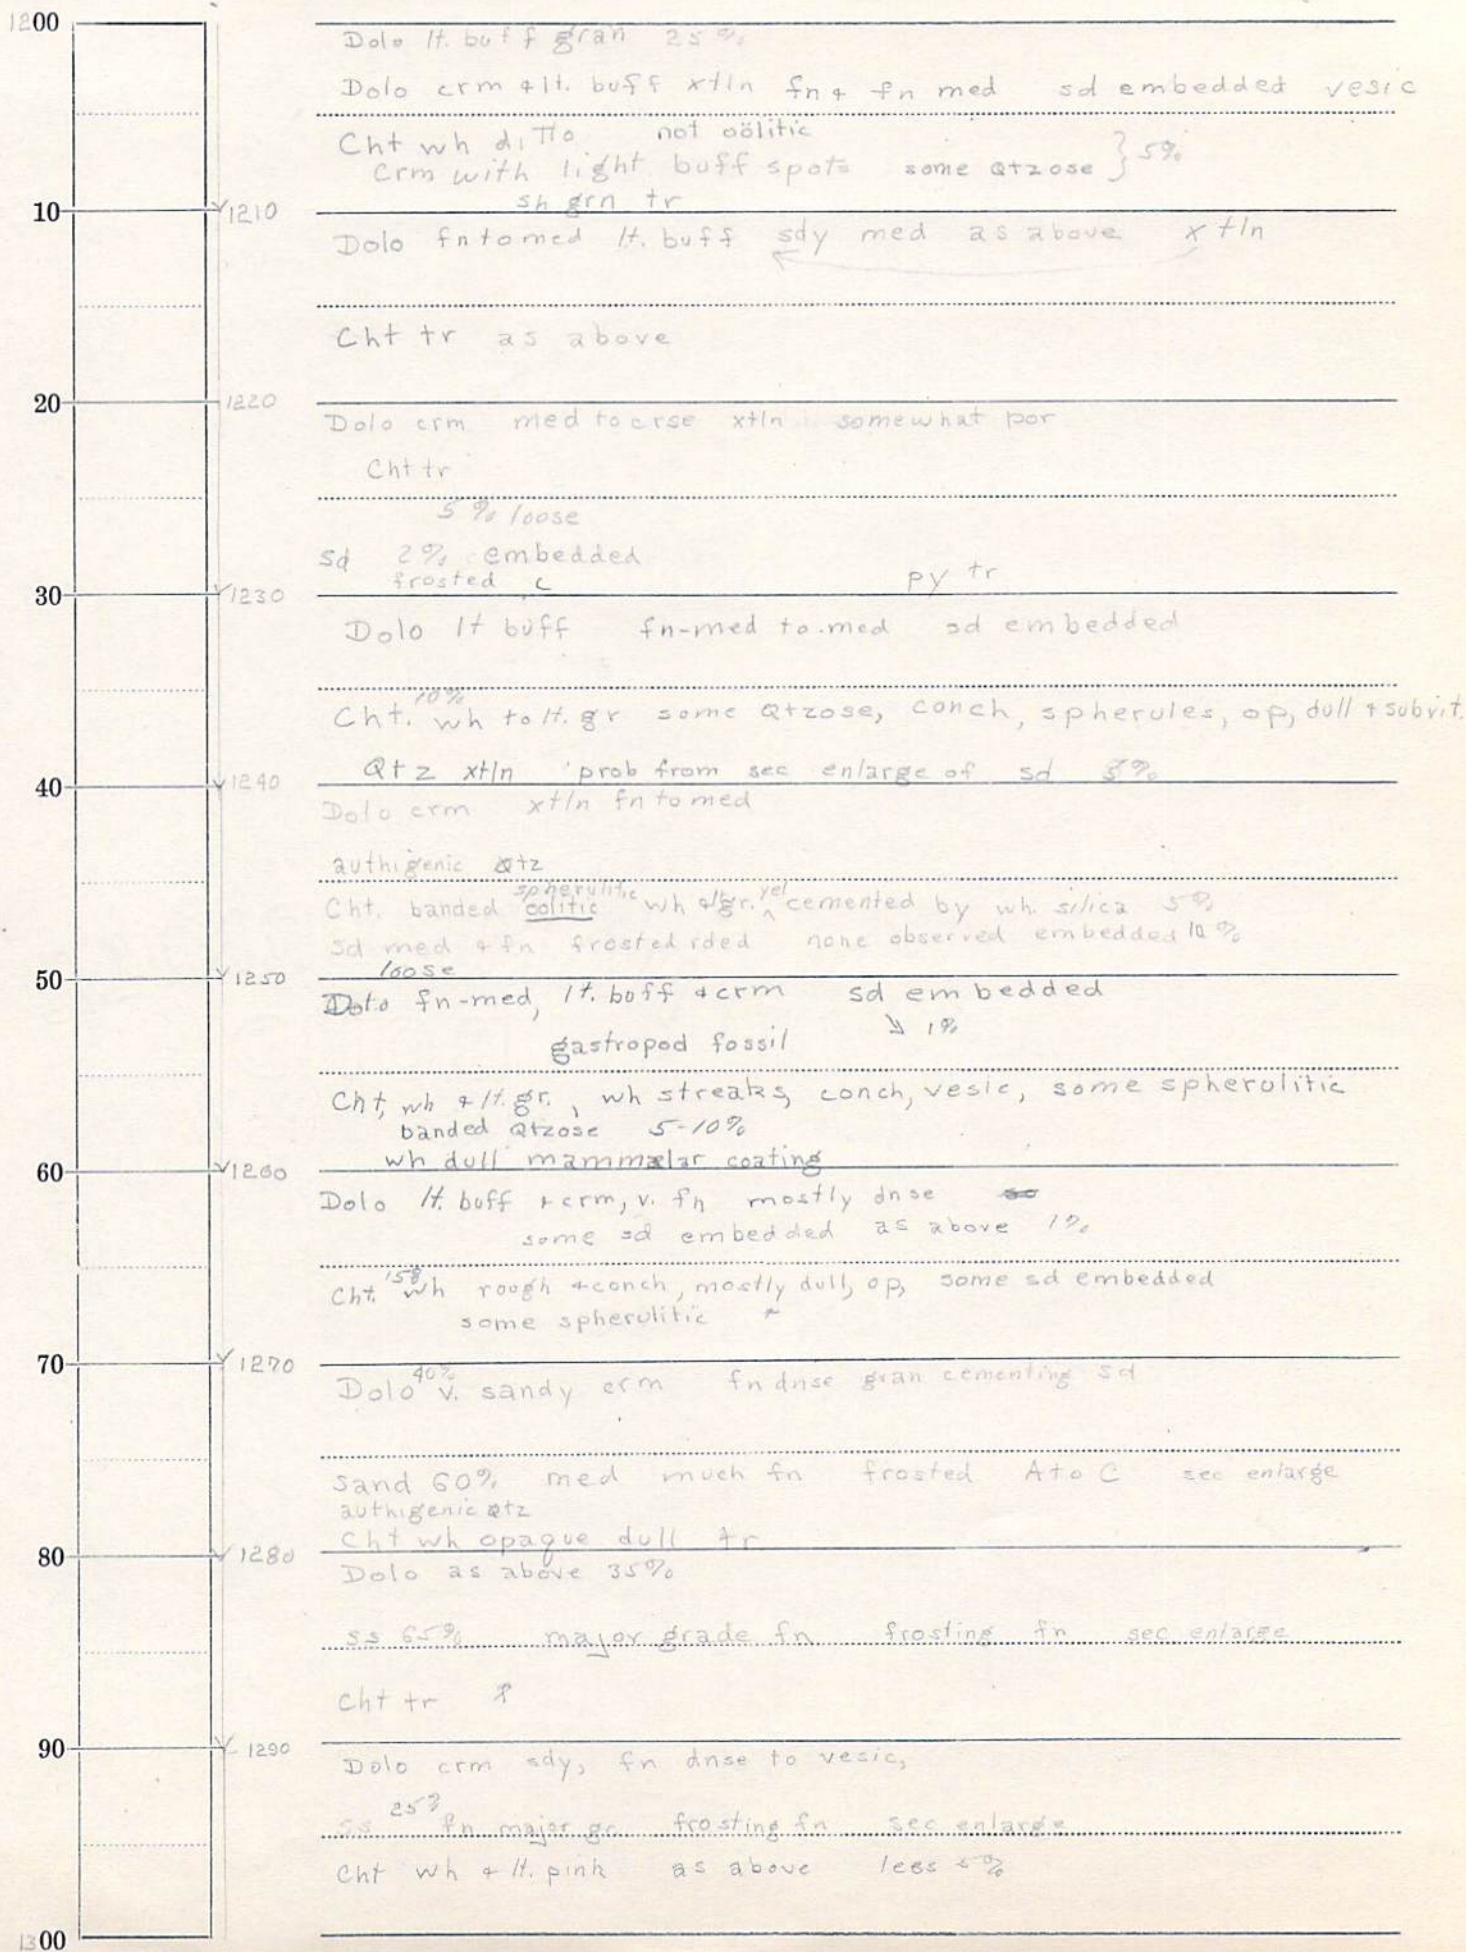 1200
Dolo lt. buff gran 25%
Dolo crm & lt. buff xtln fn & fn med sd embedded vesic
Cht wh ditto not oölitic
Crm with light buff spots some Qtzose } 5%
sh grn tr
10 1210
Dolo fn to med lt. buff sdy med as above xtln
Cht tr as above
20 1220
Dolo crm med to crse xtln somewhat por
Cht tr
5% loose
sd 2% embedded
frosted c py tr
30 1230
Dolo lt buff fn-med to med sd embedded
10%
Cht. wh to lt. gr some Qtzose, conch, spherules, op, dull & subvit.
Qtz xtln prob from sec enlarge of sd %
40 1240
Dolo crm xtln fn to med
authigenic Qtz
spherulitic yel
Cht. banded oolitic wh & gr. ^ cemented by wh. silica 5%
sd med & fn frosted rded none observed embedded 10%
loose
50 1250
Dolo fn-med, lt. buff & crm sd embedded
gastropod fossil ↘ 1%
Cht, wh & lt. gr., wh streaks, conch, vesic, some spherulitic
banded Qtzose 5-10%
wh dull mammalar coating
60 1260
Dolo lt. buff & crm, v. fn mostly dnse
some sd embedded as above 1%
15%
Cht. wh rough & conch, mostly dull, op, some sd embedded
some spherulitic
70 1270
40%
Dolo v. sandy crm fn dnse gran cementing sd
Sand 60% med much fn frosted A to C sec enlarge
authigenic qtz
Cht wh opaque dull tr
80 1280
Dolo as above 35%
ss 65% major grade fn frosting fn sec enlarge
Cht tr
90 1290
Dolo crm sdy, fn dnse to vesic,
25%
ss fn major gr frosting fn sec enlarge
Cht wh & lt. pink as above less %
1300